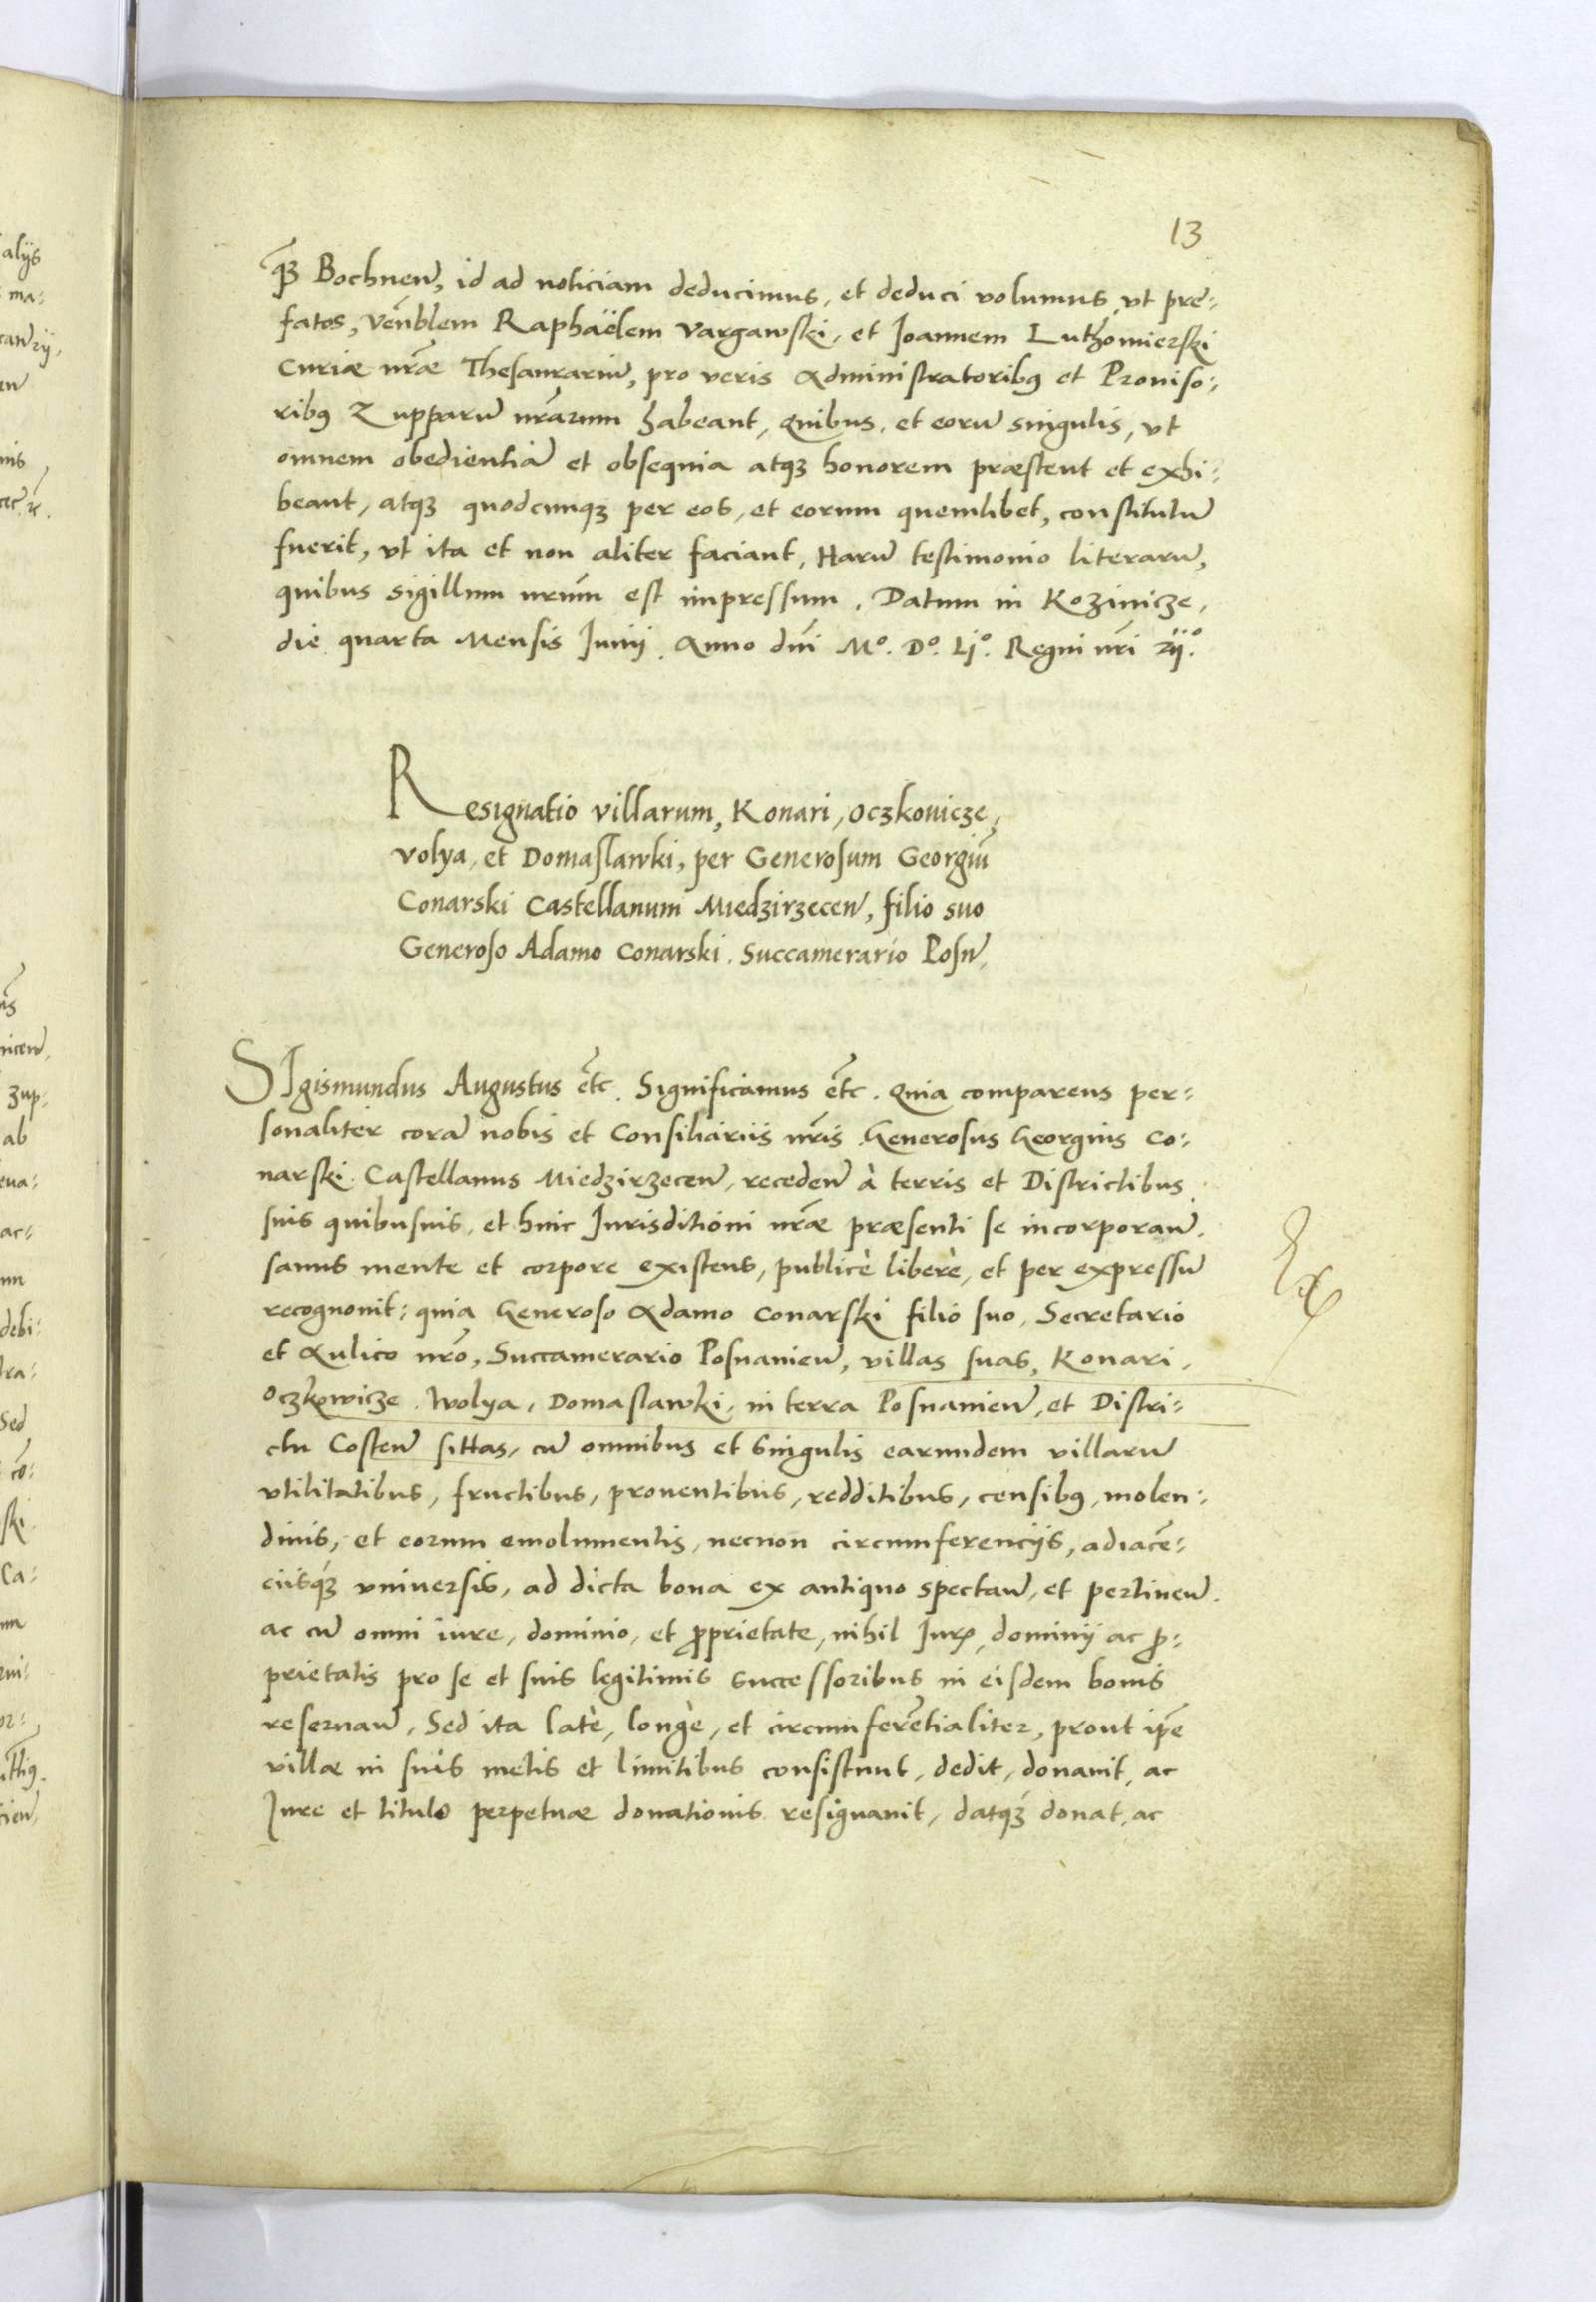 13
q̃ꝫ Bochneñ, id ad noticiam deducimus, et deduci volumus, vt pre-
fatos, Veñblem Raphaëlem Vargawski, et Joannem Luthomierski
Curiæ nr̃æ Thesaurariũ, pro veris Administratoribꝰ et Proviso-
ribꝰ Zupparũ nr̃arum habeant, Quibus, et eorũ singulis, vt
omnem obedientiã et obsequia atqꝫ honorem præstent et exhi-
beant, atqꝫ quodcunqꝫ per eos, et eorum quemlibet, constitutũ
fuerit, vt ita et non aliter faciant, Harũ testimonio literarũ,
quibus sigillum nrũm est impressum. Datum in Kozinicze,
die quarta Mensis Junij. Anno dñi Mº. Dº. Ljº. Regni nr̃i xijº.
Resignatio villarum, Konari, Oczkovicze,
Volya, et Domaslawki, per Generosum Georgiũ
Conarski Castellanum Miedzirzeceñ, filio suo
Generoso Adamo Conarski. Succamerario Posñ,
SIgismundus Augustus etc̃. Significamus etc̃. Quia comparens per-
sonaliter corã nobis et Consiliariis nr̃is Generosus Georgius Co-
narski Castellanus Miedzirzeceñ, recedeñ à terris et Districtibus
suis quibusuis, et huic Jurisditioni nr̃æ præsenti se incorporañ.
sanus mente et corpore existens, publicè liberè, et per expressũ
recognouit: quia Generoso Adamo Conarski filio suo, Secretario
et Aulico nr̃o, Succamerario Posnanieñ, villas suas, Konari,
Oczkowicze. Wolya, Domaslawki, in terra Posnanieñ, et Distri-
ctu Costeñ sittas, cũ omnibus et singulis earundem villarũ
vtilitatibus, fructibus, prouentibus, redditibus, censibꝰ, molen-
dinis, et eorum emolumentis, necnon circumferencijs, adiacẽ-
ciisqꝫ vniversis, ad dicta bona ex antiquo spectañ, et pertineñ.
ac cũ omni iure, dominio, et ꝓprietate, nihil Juris, dominij ac ꝓ-
prietatis pro se et suis legitimis successoribus in eisdem bonis
reseruañ, Sed ita latè, longè, et circumferẽtialiter, prout ip̃e
villæ in suis metis et limitibus consistunt, dedit, donauit, ac
Jure et titulo perpetuæ donationis resignauit, datqꝫ donat, ac